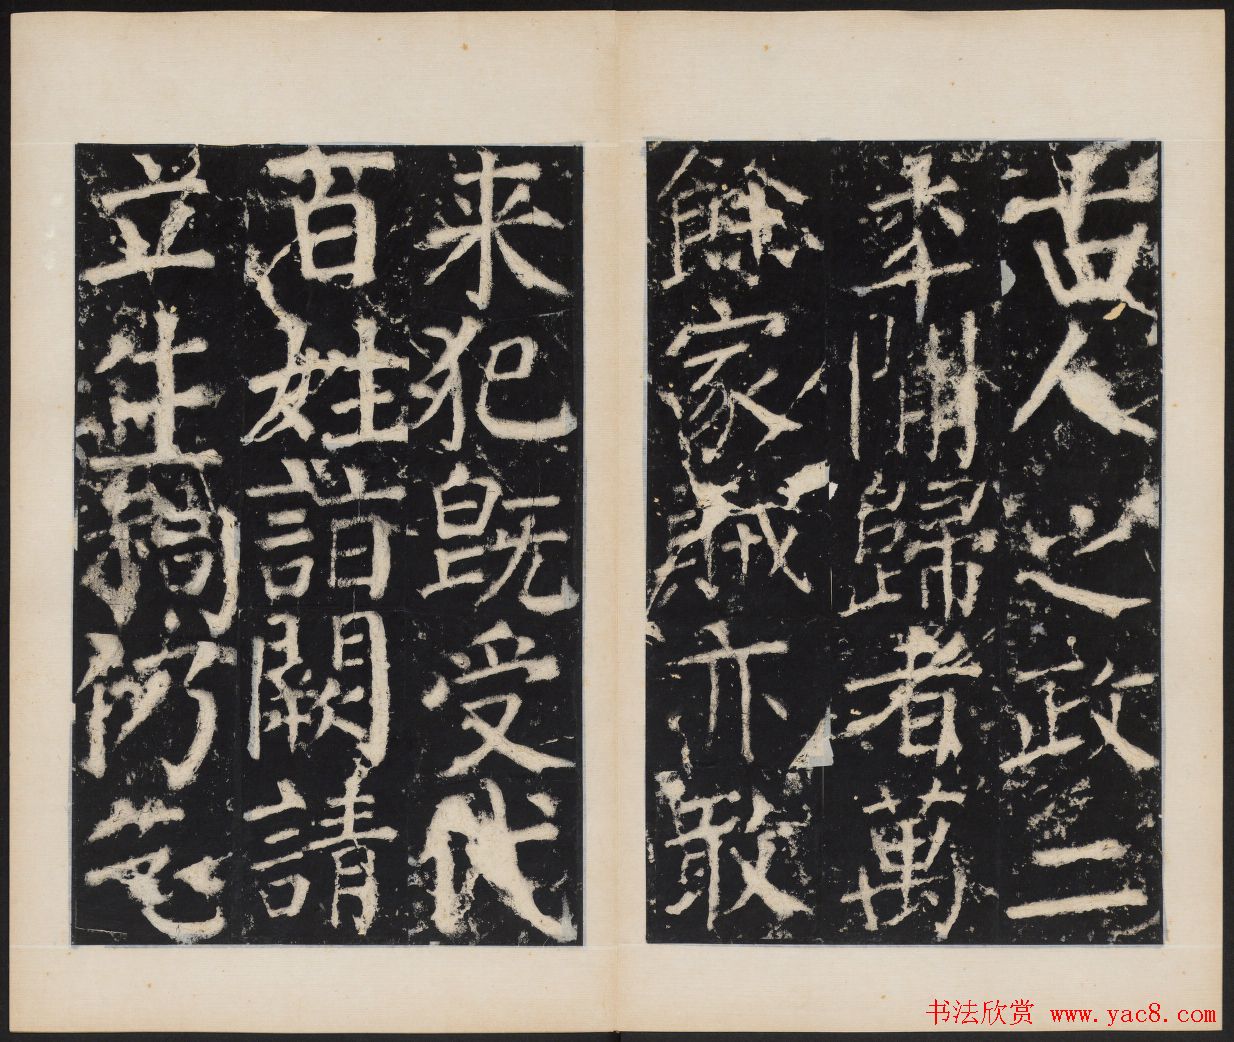 古人之政二
年閒歸者萬
餘家賊亦敢
来犯既受代
百姓詣闕請
立生祠仍乞
书法欣赏 www.yac8.com